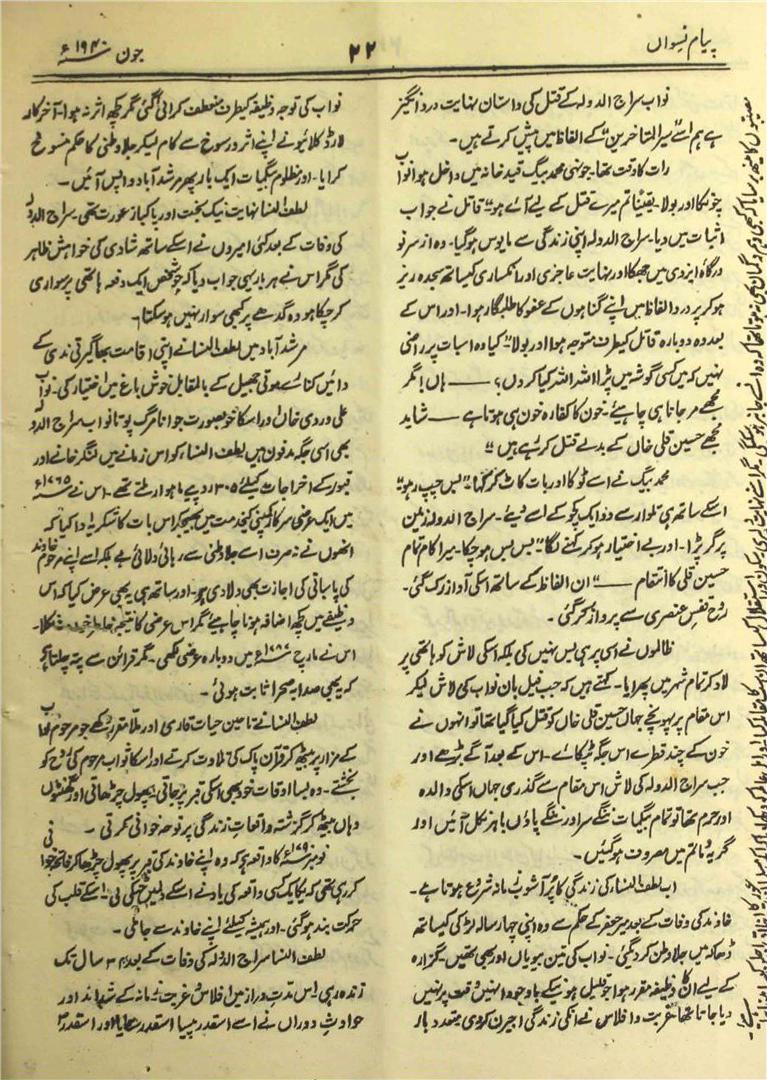 پیام نسواں
۲۲
جون ۱۹۴۰ء
نواب سراج الدولہ کے قتل کی داستان نہایت درد انگیز
ہے ہم اسے "سیر المتاخرین" کے الفاظ میں پیش کرتے ہیں۔
رات کا وقت تھا۔ جونہی محمد بیگ قید خانہ میں داخل ہوا نواب
چونکا اور بولا۔ یقیناً تم میرے قتل کے لیے آئے ہو" قاتل نے جواب
اثبات میں دیا۔ سراج الدولہ اپنی زندگی سے مایوس ہوگیا۔ وہ از سر نو
درگاہ ایزدی میں جھکا اور نہایت عاجزی اور انکساری کیساتھ سجدہ ریز
ہو کر پر درد الفاظ میں اپنے گناہوں کے عفو کا طلبگار ہوا۔ اور اس کے
بعد وہ دوبارہ قاتل کیطرف متوجہ ہوا اور بولا" کیا وہ اسبات پر راضی
نہیں کہ میں کسی گوشہ میں پڑا اللہ اللہ کیا کروں؟ —— ہاں! مگر
مجھے مر جانا ہی چاہیئے۔ خون کا کفارہ خون ہی ہوتا ہے —— شاید
مجھے حسین قلی خاں کے بدلے قتل کر رہے ہیں"
محمد بیگ نے اسے ٹوکا اور بات کاٹ کر کہا۔ "بس چپ رہو"
اسکے ساتھ ہی تلوار سے دو ایک کچوکے اسے دیئے۔ سراج الدولہ زمین
پر گر پڑا۔ اور بے اختیار ہو کر کہنے لگا" بس بس ہوچکا۔ میرا کام تمام
حسین قلی کا انتقام ——" ان الفاظ کے ساتھ اسکی آواز رک گئی۔
روح قفس عنصری سے پرواز کر گئی۔
ظالموں نے اسی پر ہی بس نہیں کی بلکہ اسکی لاش کو ہاتھی پر
لاد کر تمام شہر میں پھرایا۔ کہتے ہیں کہ جب فیل بان نواب کی لاش لیکر
اس مقام پر پہونچے جہاں حسین قلی خاں کو قتل کیا گیا تھا تو انہوں نے
خون کے چند قطرے اس جگہ ٹپکائے۔ اس کے بعد آگے بڑھے اور
جب سراج الدولہ کی لاش اس مقام سے گذری جہاں اسکی والدہ
اور حرم تھا تو تمام بیگمات ننگے سر اور ننگے پاؤں باہر نکل آئیں اور
گریہ و ماتم میں مصروف ہوگئیں۔
اب لطف النساء کی زندگی کا پر آشوب زمانہ شروع ہوتا ہے۔
خاوند کی وفات کے بعد میر جعفر کے حکم سے وہ اپنی چہار سالہ لڑکی کیساتھ
ڈھاکہ میں جلا وطن کر دی گئی۔ نواب کی تین بیویاں اور بھی تھیں۔ گزارہ
کے لیے ان کا وظیفہ مقرر ہوا جو قلیل ہونیکے باوجود انہیں وقت پر نہیں
دیا جاتا تھا غربت و افلاس نے انکی زندگی اجیرن کر دی متعدد بار
نواب کی توجہ وظیفہ کیطرف منعطف کرائی گئی مگر کچھ اثر نہ ہوا۔ آخرکار
لارڈ کلائیو نے اپنے اثر و رسوخ سے کام لیکر جلاوطنی کا حکم منسوخ
کرایا۔ اور مظلوم بیگیات ایک بار پھر مرشد آباد واپس آئیں۔
لطف النسا نہایت نیک بخت اور پاکباز عورت تھی۔ سراج الدولہ
کی وفات کے بعد کئی امیروں نے اسکے ساتھ شادی کی خواہش ظاہر
کی مگر اس نے ہر بار یہی جواب دیا کہ جو شخص ایک دفعہ ہاتھی پر سواری
کر چکا ہو وہ گدھے پر کبھی سوار نہیں ہوسکتا۔
مرشد آباد میں لطف النسا نے اپنی اقامت بھاگیرتی ندی کے
دائیں کنارے موتی جھیل کے بالمقابل خوش باغ میں اختیار کی۔ نواب
علی وردی خاں اور اسکا خوبصورت جوانا مرگ پوتا نواب سراج الدولہ
بھی اسی جگہ مدفون ہیں لطف النساء کو اس زمانے میں لنگر خانے اور
قبور کے اخراجات کیلئے ۳۰۵ روپے ماہوار ملتے تھے۔ اس نے ۱۷۶۵ء
میں ایک عرضی سرکار کمپنی کیخدمت میں بھیجکر اس بات کا شکریہ ادا کیا کہ
انھوں نے نہ صرف اسے جلاوطنی سے رہائی دلائی ہے بلکہ اسے اپنے مرحوم خاوند
کی پاسبانی کی اجازت بھی دلا دی ہے۔ اور ساتھ ہی یہ بھی عرض کیا کہ اس
وظیفے میں کچھ اضافہ ہونا چاہیئے مگر اس عرضی کا نتیجہ نکلا۔
اس نے مارچ ۱۷۸۷ء میں دوبارہ عرضی لکھی۔ مگر قرائن سے پتہ چلتا ہے
کہ یہ بھی صدا بہ صحرا ثابت ہوئی۔
لطف النسا نے تا حین حیات قاری اور ملا مقرر رکھے جو مرحوم نواب
کے مزار پر بیٹھ کر قرآن پاک کی تلاوت کرتے اور اسکا ثواب مرحوم کی روح کو
بخشتے۔ وہ بسا اوقات خود بھی اسکی قبر پر جاتی پھول چڑھاتی اور گھنٹوں
وہاں بیٹھ کر گزشتہ واقعاتِ زندگی پر نوحہ خوانی کرتی۔
نومبر ۱۷۹۰ء کا واقعہ ہے کہ وہ اپنے خاوند کی قبر پر پھول چڑھا کر فاتحہ خوانی
کر رہی تھی کہ یکایک کسی واقعہ کی یاد نے اسکے دلمیں چٹکی لی۔ اسکے قلب کی
حرکت بند ہوگئی۔ اور ہمیشہ کیلئے اپنے خاوند سے جا ملی۔
لطف النسا سراج الدولہ کی وفات کے بعد ۳۴ سال تک
زندہ رہی اس مدت دراز میں افلاس و غربت زمانہ کے شدائد اور
حوادثِ دوراں نے اسے اسقدر پیسا اسقدر ستایا اور اسقدر